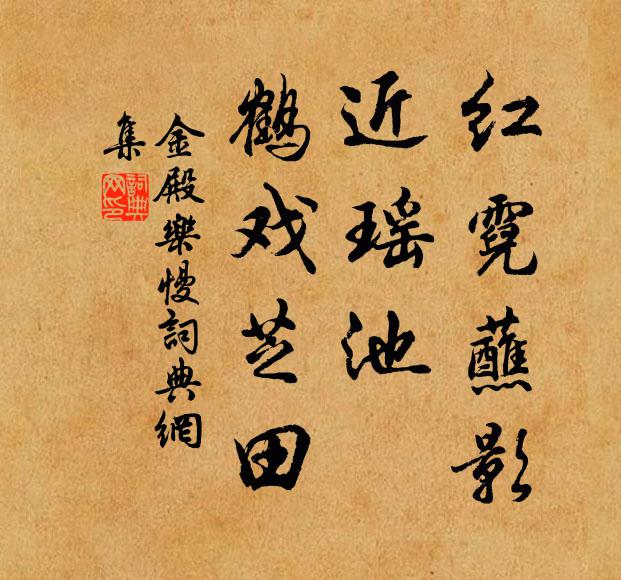 红霓蘸影
近瑶池
鹤戏芝田
金殿樂慢詞典網
集
詞典
网印